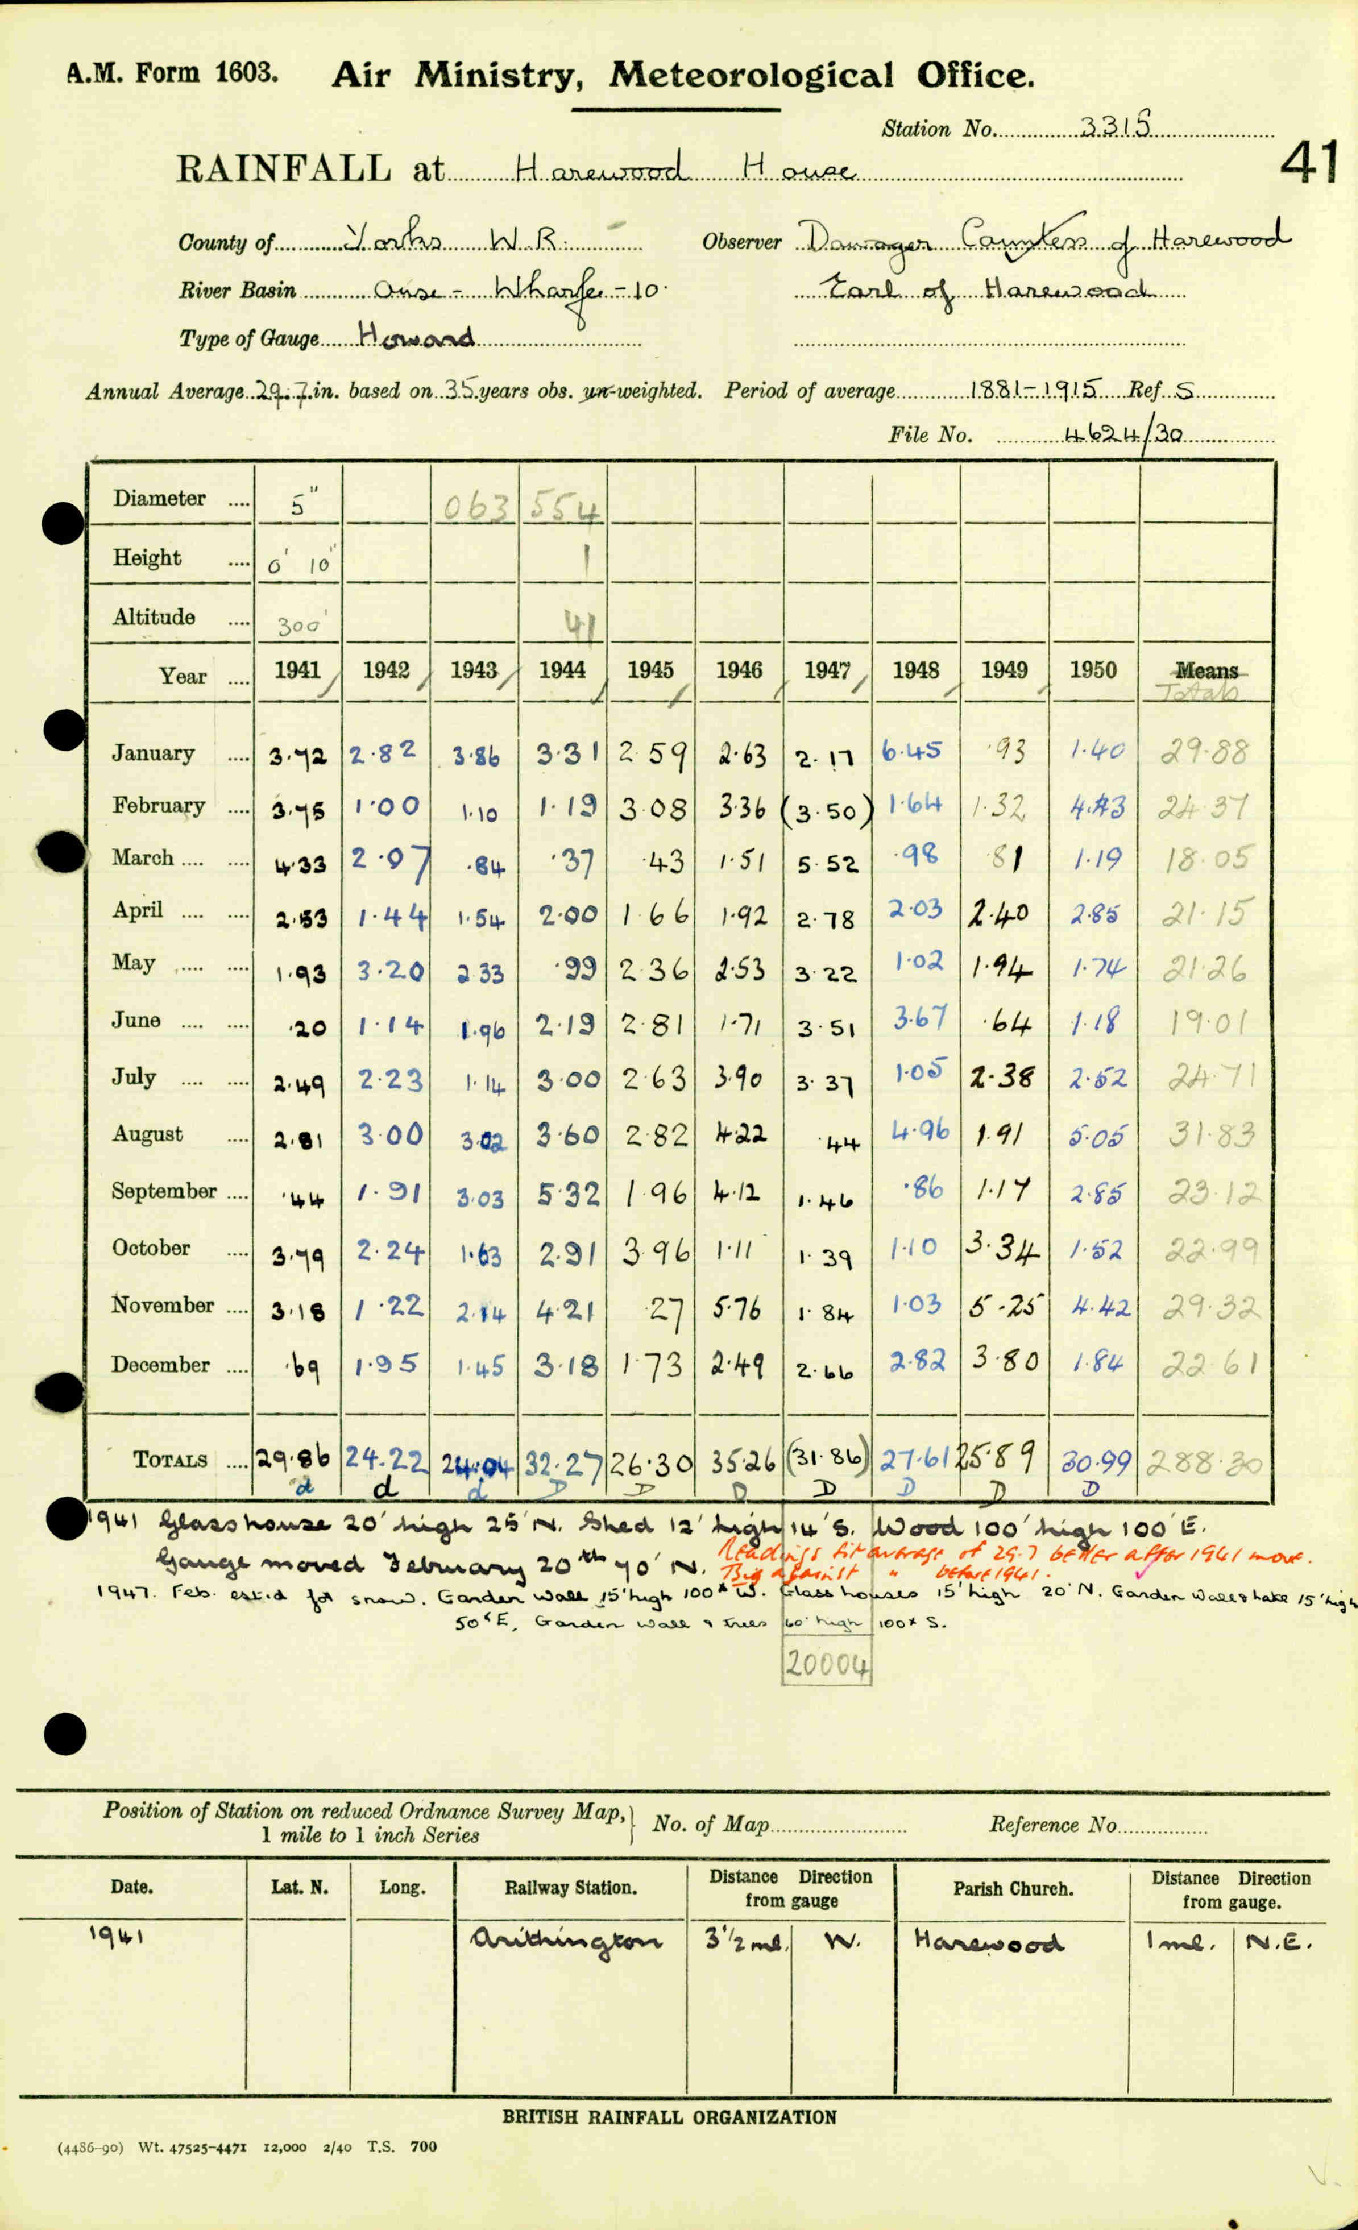 A.M. Form 1603. Air Ministry, Meteorological Office.
Station No. 3315
41
RAINFALL at Harewood House
County of Yorks W.R. Observer Dowager Countess of Harewood
River Basin Ouse - Wharfe - 10. Earl of Harewood
Type of Gauge Howard
Annual Average 29.7 in. based on 35 years obs. un-weighted. Period of average 1881-1915 Ref. S
File No. 4624/30
Diameter .... 5" 063 554
Height .... 0' 10" 1
Altitude .... 300' 41
Year .... 1941 1942 1943 1944 1945 1946 1947 1948 1949 1950 Means
Totals
January .... 3.72 2.82 3.86 3.31 2.59 2.63 2.17 6.45 .93 1.40 29.88
February .... 3.75 1.00 1.10 1.19 3.08 3.36 (3.50) 1.64 1.32 4.43 24.37
March .... .... 4.33 2.07 .84 .37 .43 1.51 5.52 .98 .81 1.19 18.05
April .... .... 2.53 1.44 1.54 2.00 1.66 1.92 2.78 2.03 2.40 2.85 21.15
May .... .... 1.93 3.20 2.33 .99 2.36 2.53 3.22 1.02 1.94 1.74 21.26
June .... .... .20 1.14 1.96 2.19 2.81 1.71 3.51 3.67 .64 1.18 19.01
July .... .... 2.49 2.23 1.14 3.00 2.63 3.90 3.37 1.05 2.38 2.52 24.71
August .... 2.81 3.00 3.02 3.60 2.82 4.22 .44 4.96 1.91 5.05 31.83
September .... .44 1.91 3.03 5.32 1.96 4.12 1.46 .86 1.17 2.85 23.12
October .... 3.79 2.24 1.63 2.91 3.96 1.11 1.39 1.10 3.34 1.52 22.99
November .... 3.18 1.22 2.14 4.21 .27 5.76 1.84 1.03 5.25 4.42 29.32
December .... .69 1.95 1.45 3.18 1.73 2.49 2.66 2.82 3.80 1.84 22.61
TOTALS .... 29.86 24.22 24.04 32.27 26.30 35.26 (31.86) 27.61 25.89 30.99 288.30
d d d D D D D D D D
1941 Glasshouse 20' high 25' N. Shed 12' high 14' S. Wood 100' high 100' E.
Gauge moved February 20th 70' N. Readings fit average of 29.7 better after 1941 move.
Big against " before 1941.
1947. Feb. est.d for snow. Garden Wall 15' high 100x W. Glass houses 15' high 20' N. Garden Wall & 15' high
50x E, Garden wall & trees 60' high 100x S.
20004
Position of Station on reduced Ordnance Survey Map, 1 mile to 1 inch Series No. of Map Reference No.
Date. Lat. N. Long. Railway Station. Distance Direction from gauge Parish Church. Distance Direction from gauge.
1941 Arthington 3½ ml. W. Harewood 1 ml. N.E.
BRITISH RAINFALL ORGANIZATION
(4486-90) Wt. 47525-4471 12,000 2/40 T.S. 700